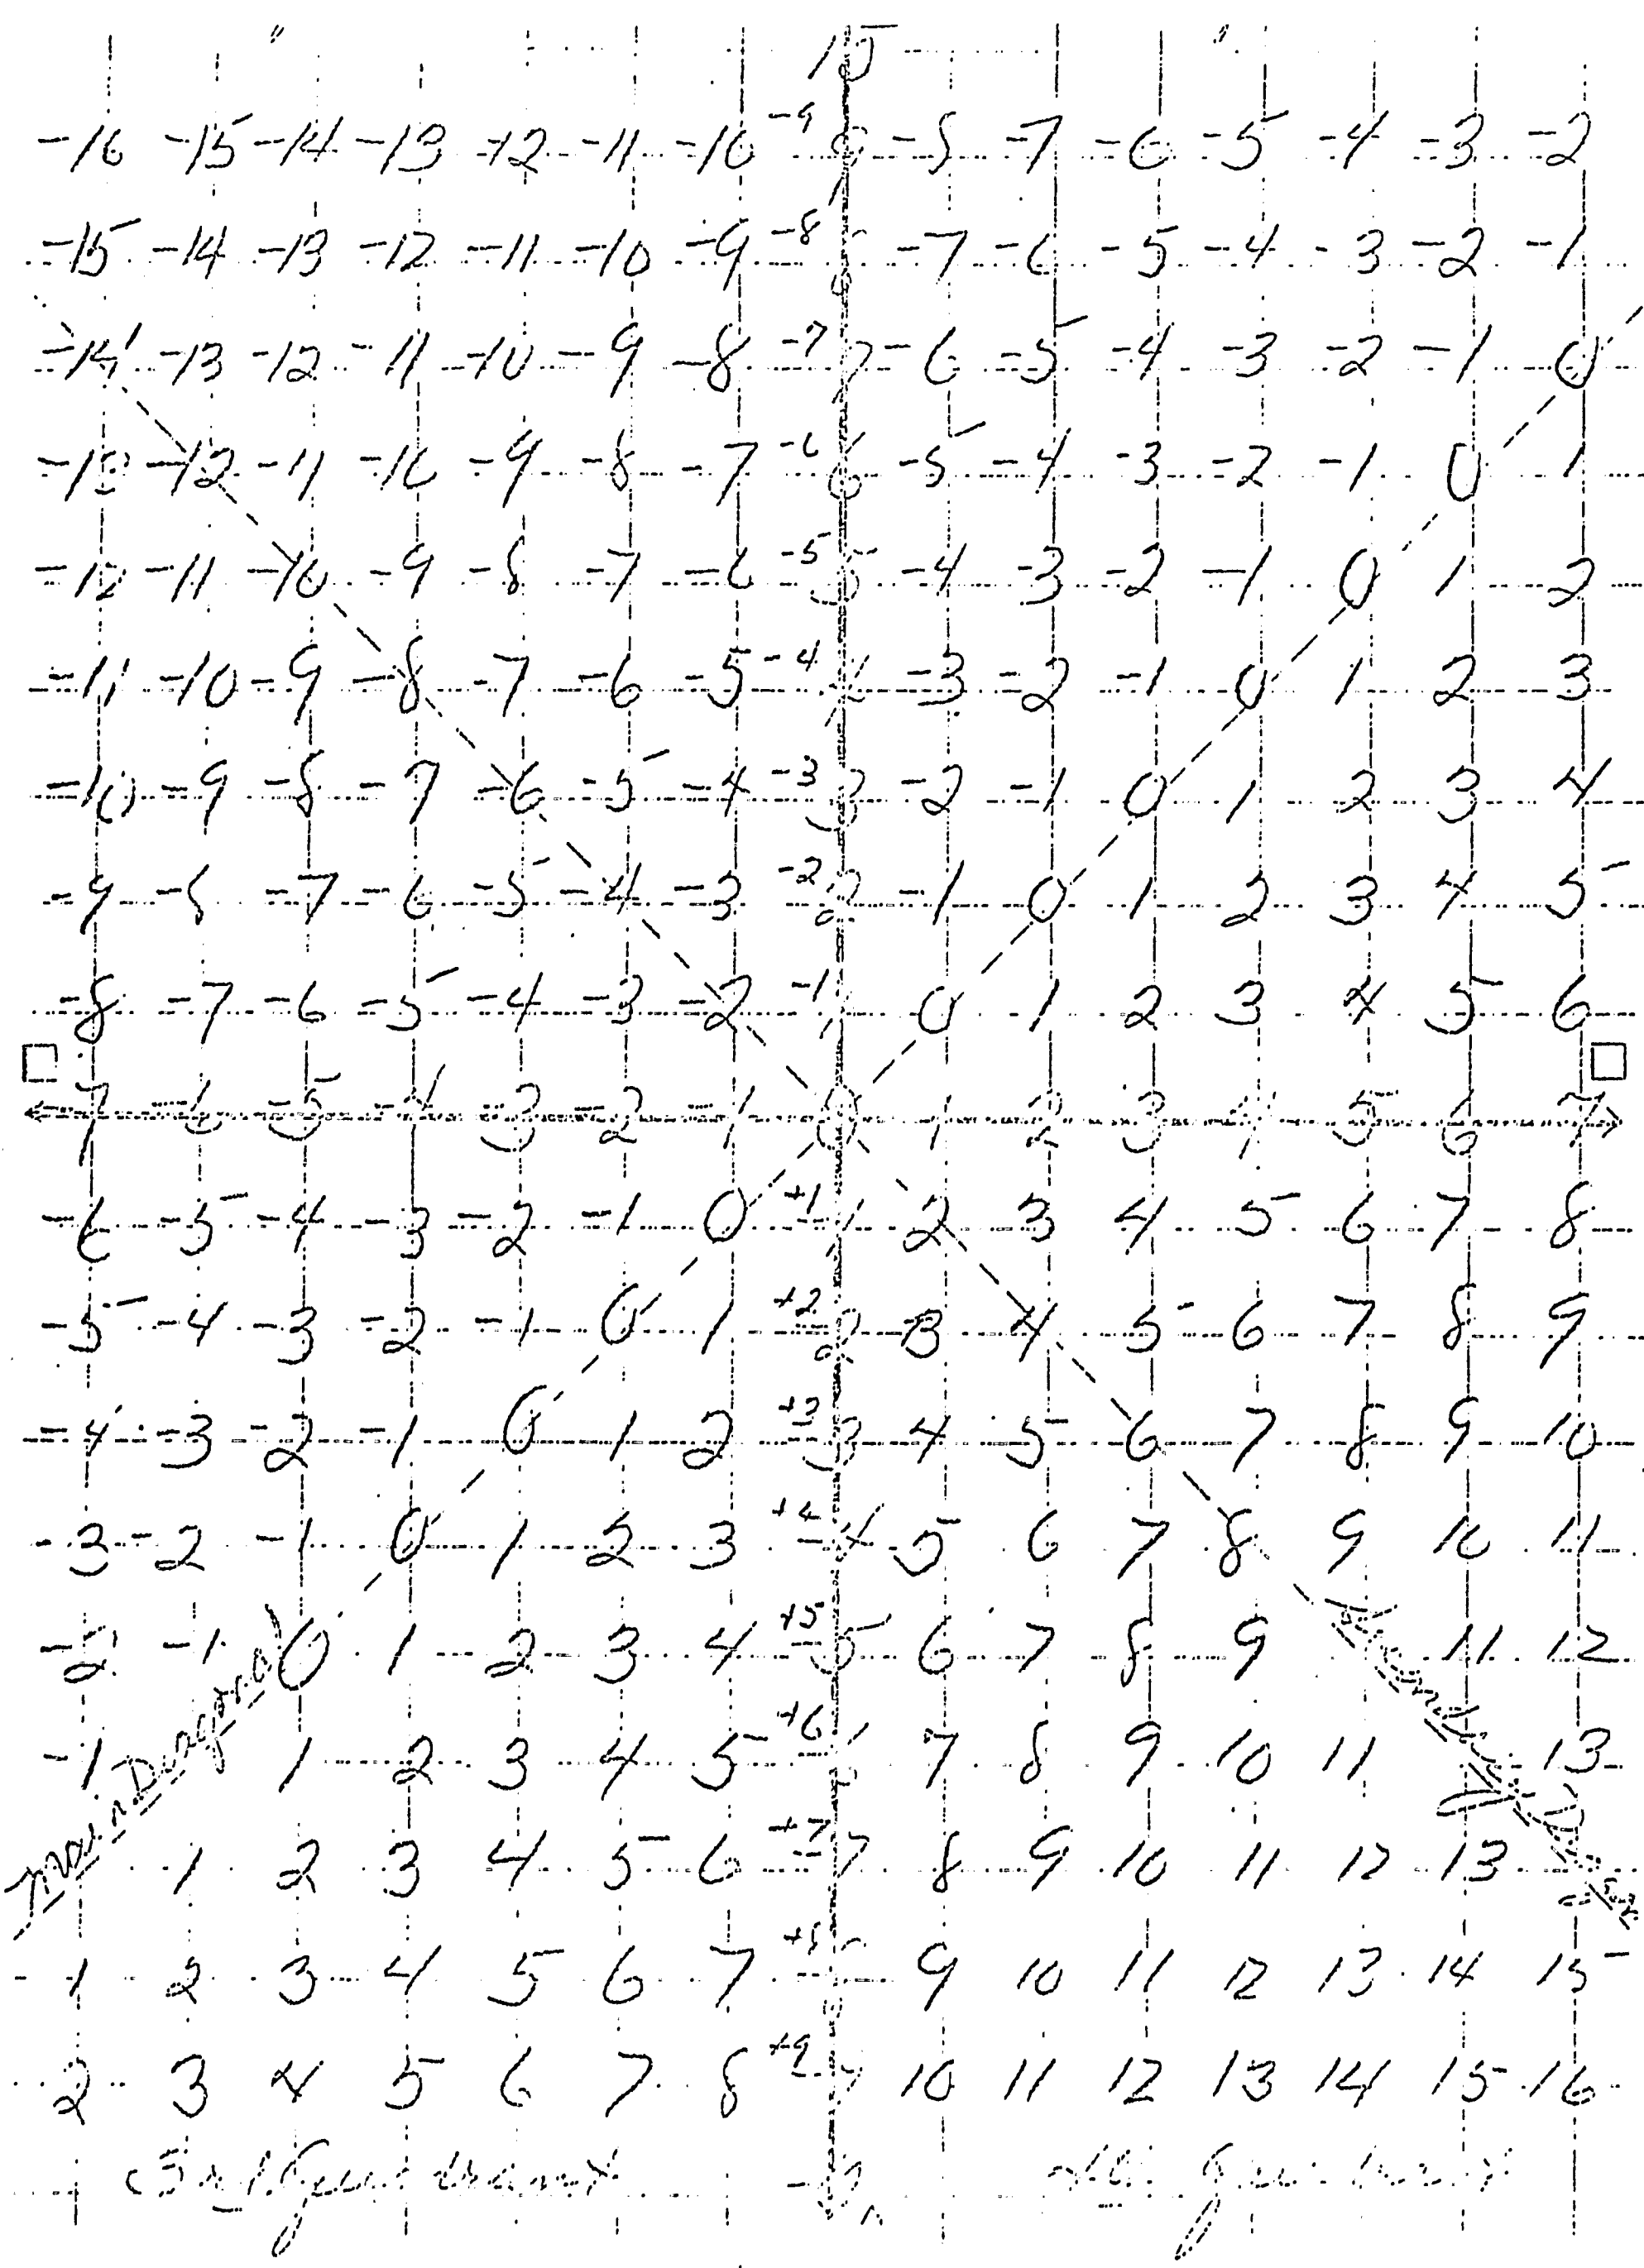 10
-16 -15 -14 -13 -12 -11 -10 -9 9 -8 -7 -6 -5 -4 -3 -2
-15 -14 -13 -12 -11 -10 -9 -8 8 -7 -6 -5 -4 -3 -2 -1
-14 -13 -12 -11 -10 -9 -8 -7 7 -6 -5 -4 -3 -2 -1 0
-13 -12 -11 -10 -9 -8 -7 -6 6 -5 -4 -3 -2 -1 0 1
-12 -11 -10 -9 -8 -7 -6 -5 5 -4 -3 -2 -1 0 1 2
-11 -10 -9 -8 -7 -6 -5 -4 4 -3 -2 -1 0 1 2 3
-10 -9 -8 -7 -6 -5 -4 -3 3 -2 -1 0 1 2 3 4
-9 -8 -7 -6 -5 -4 -3 -2 2 -1 0 1 2 3 4 5
-8 -7 -6 -5 -4 -3 -2 -1 1 0 1 2 3 4 5 6
-7 -6 -5 -4 -3 -2 -1 0 1 2 3 4 5 6 7
-6 -5 -4 -3 -2 -1 0 +1 -1 2 3 4 5 6 7 8
-5 -4 -3 -2 -1 0 1 +2 -2 3 4 5 6 7 8 9
-4 -3 -2 -1 0 1 2 +3 -3 4 5 6 7 8 9 10
-3 -2 -1 0 1 2 3 +4 -4 5 6 7 8 9 10 11
-2 -1 0 1 2 3 4 +5 -5 6 7 8 9 11 12
-1 1 2 3 4 5 +6 -6 7 8 9 10 11 13
Main Diagonal
1 2 3 4 5 6 +7 -7 8 9 10 11 12 13
1 2 3 4 5 6 7 +8 9 10 11 12 13 14 15
2 3 4 5 6 7 8 +9 -9 10 11 12 13 14 15 16
(3rd Quadrant
4th Quadrant